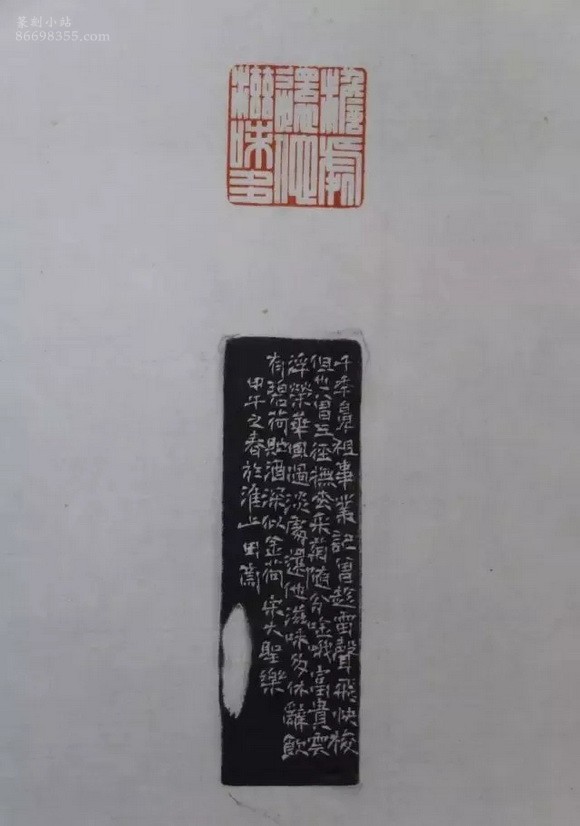 篆刻小站
86698355.com
澹處
還他
滋味多
千年鼻祖事業記曾趁雷聲飛快梭
但也曾三徑撫松采菊隨分吟哦富貴雲
浮榮華風過淡處還他滋味多休辭飲
有碧荷貯酒深似金荷 宋大聖樂
甲午之春於淮上田